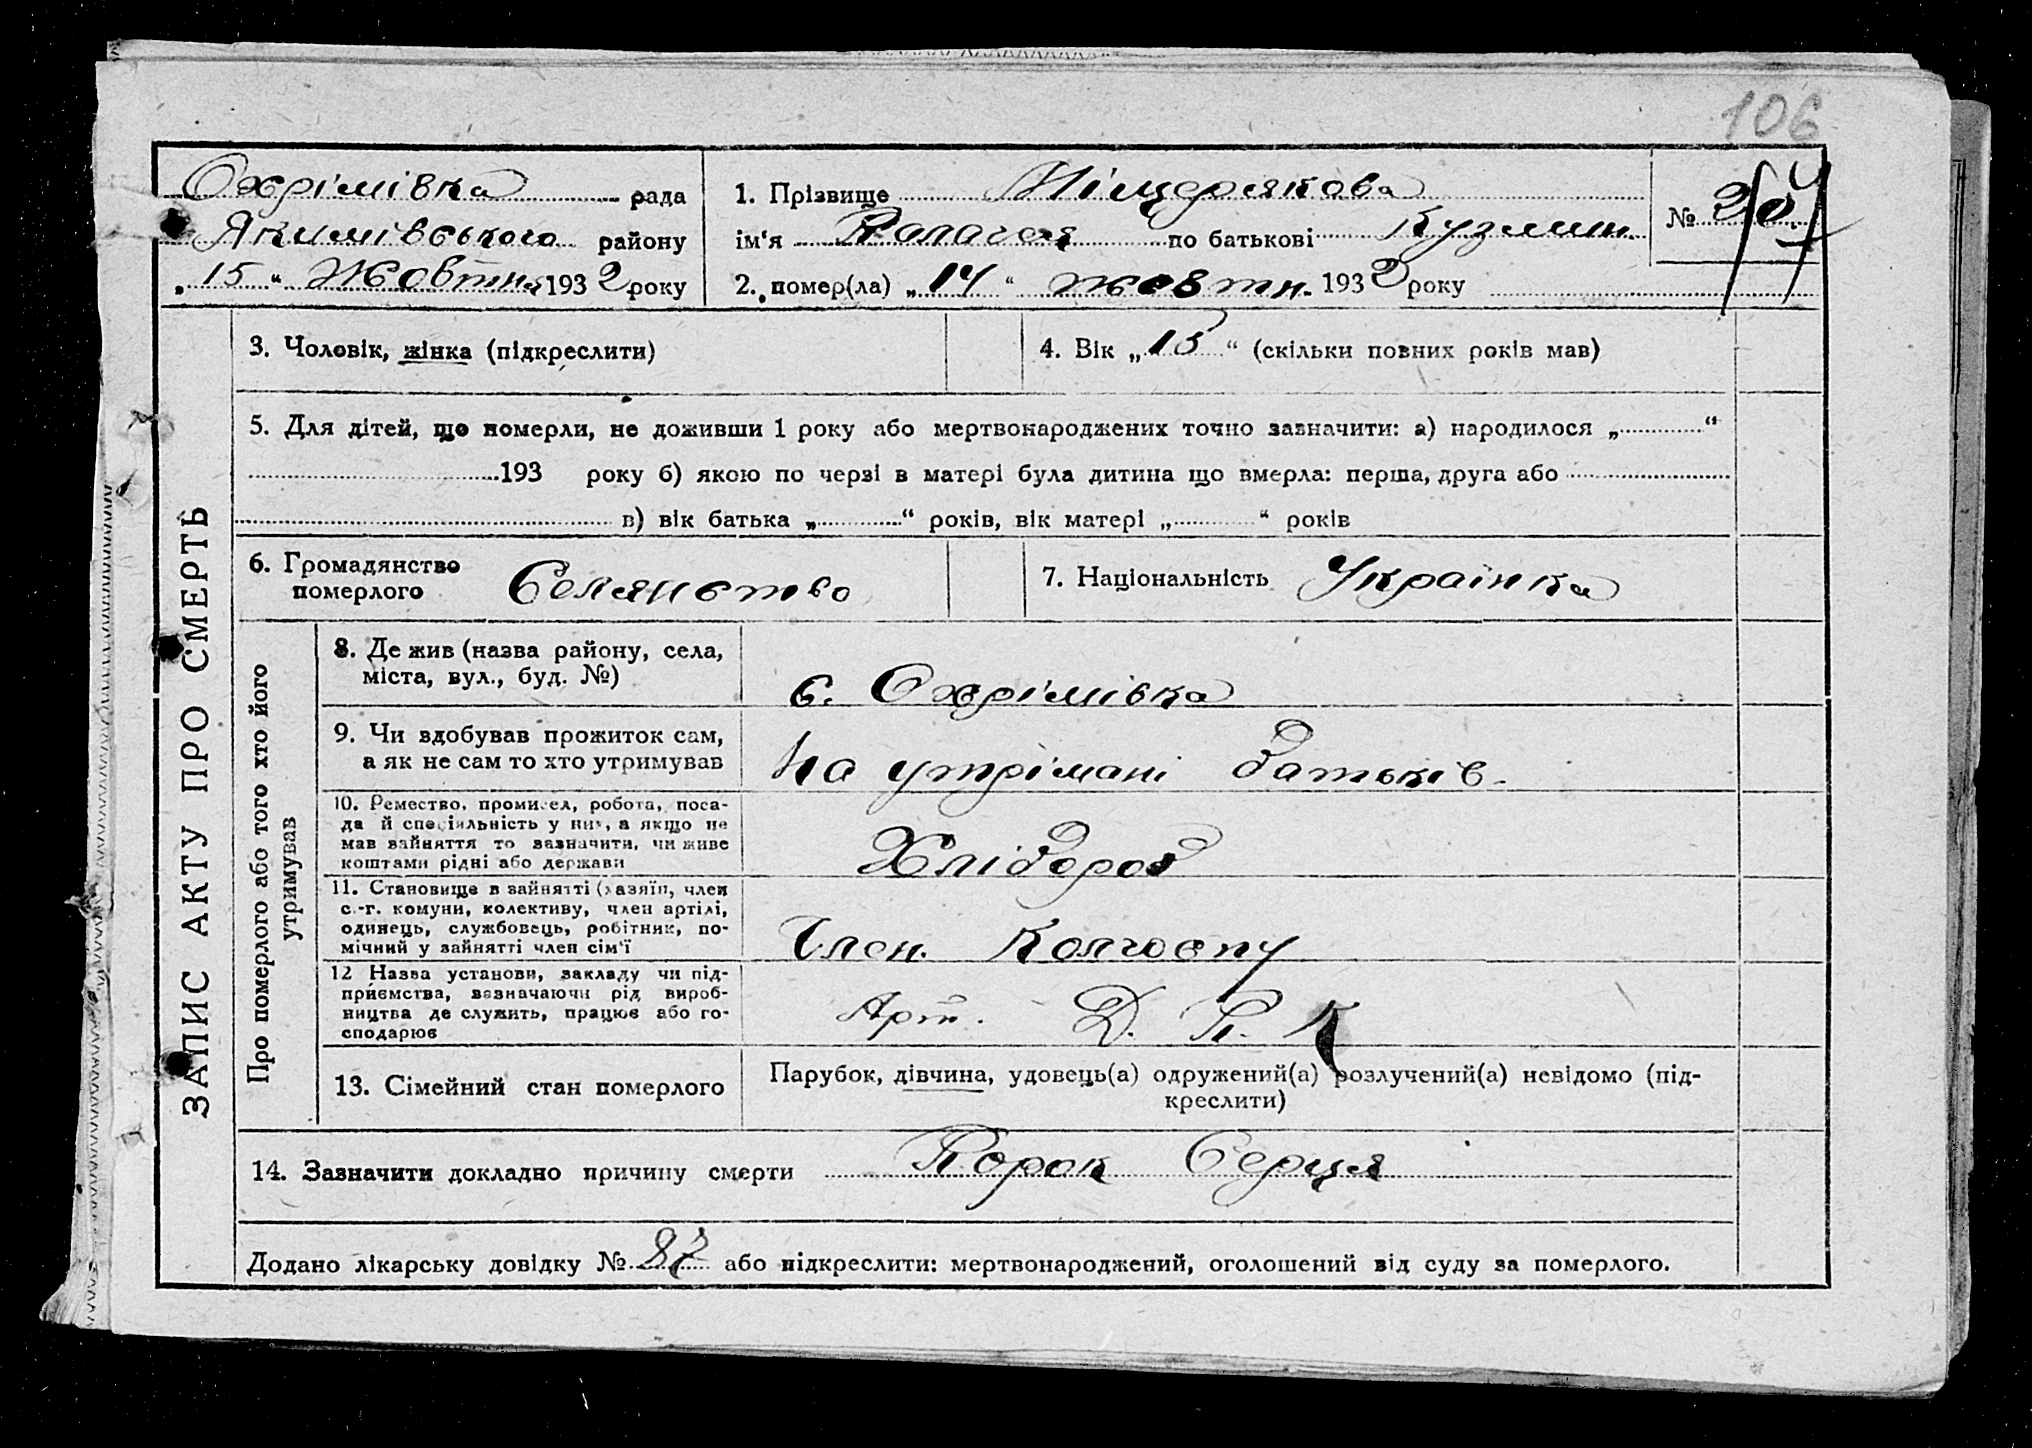 106
Охрімівка рада
Якимівського району
„15“ Жовтня 1932 року
1. Прізвище Міщерякова
ім'я Палагея по батькові Кузмин.
2. помер(ла) „14“ жовтн. 1932 року
№
3. Чоловік, жінка (підкреслити)
4. Вік „15“ (скільки повних років мав)
5. Для дітей, що померли, не доживши 1 року або мертвонароджених точно зазначити: а) народилося „ “
193 року б) якою по черзі в матері була дитина що вмерла: перша, друга або
в) вік батька „ “ років, вік матері „ “ років
6. Громадянство
померлого Селянство
7. Національність Українка
ЗАПИС АКТУ ПРО СМЕРТЬ
Про померлого або того хто його
утримував
8. Де жив (назва району, села,
міста, вул., буд. №)
с. Охрімівка
9. Чи вдобував прожиток сам,
а як не сам то хто утримував
На утрімані батьків.
10. Ремество, промисел, робота, поса-
да й спеціяльність у них, а якщо не
мав зайняття то зазначити, чи живе
коштами рідні або держави
Хлібороб
11. Становище в зайнятті (хазяїн, член
с.-г. комуни, колективу, член артілі,
одинець, службовець, робітник, по-
мічний у зайнятті член сім'ї
Член. Колгоспу
12 Назва установи, закладу чи під-
приємства, зазначаючи рід вироб-
ництва де служить, працює або го-
сподарює
Арт. Д. П. К
13. Сімейний стан померлого
Парубок, дівчина, удовець(а) одружений(а) розлучений(а) невідомо (під-
креслити)
14. Зазначити докладно причину смерти Порок Серця
Додано лікарську довідку № 87 або підкреслити: мертвонароджений, оголошений від суду за померлого.